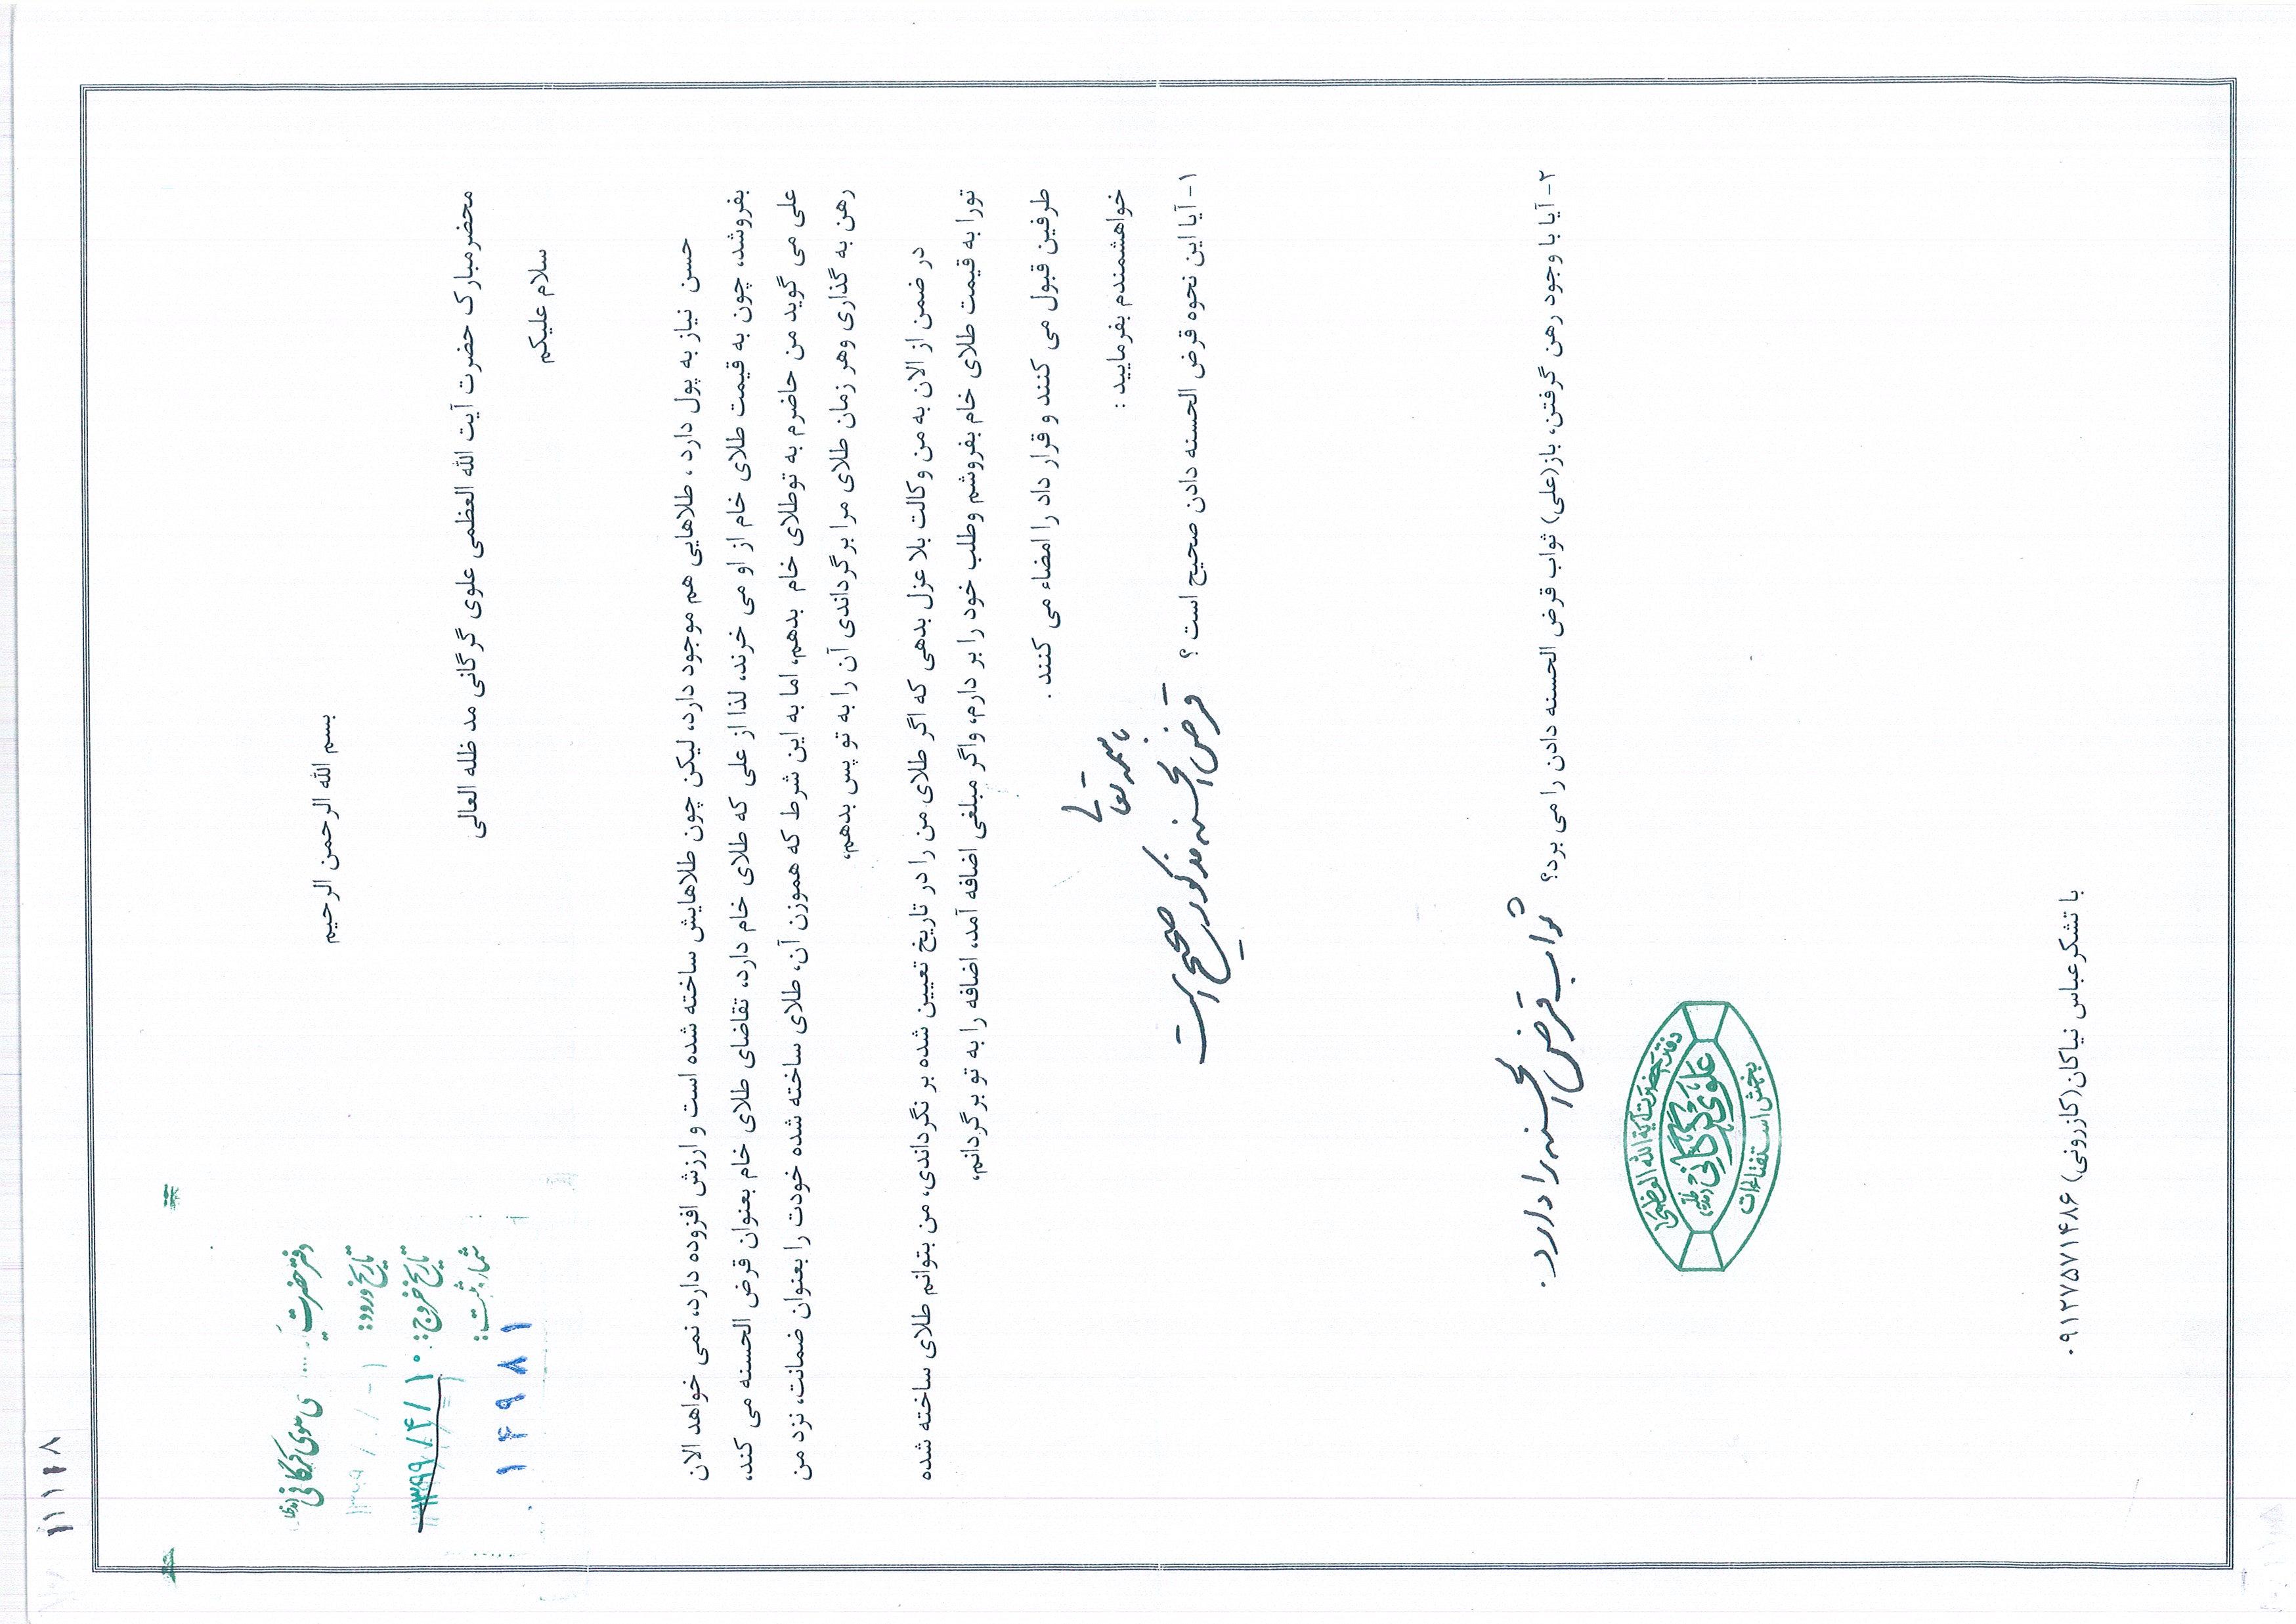 ۱۱۱۲۸
دفتر حضرت آیة
علوی گرگانی
تاریخ ورود:
تاریخ خروج: ۱۳۹۹/۴/۱۰
شماره ثبت:
۱۴۹۸۱
بسم الله الرحمن الرحیم
محضر مبارک حضرت آیت الله العظمی علوی گرگانی مد ظله العالی
سلام علیکم
حسن نیاز به پول دارد ، طلاهایی هم موجود دارد، لیکن چون طلاهایش ساخته شده است و ارزش افزوده دارد، نمی خواهد الان
بفروشد، چون به قیمت طلای خام از او می خرند، لذا از علی که طلای خام دارد، تقاضای طلای خام بعنوان قرض الحسنه می کند،
علی می گوید من حاضرم به توطلای خام بدهم، اما به این شرط که هموزن آن، طلای ساخته شده خودت را بعنوان ضمانت، نزد من
رهن به گذاری وهر زمان طلای مرا برگرداندی آن را به تو پس بدهم،
در ضمن از الان به من وکالت بلا عزل بدهی که اگر طلای من را در تاریخ تعیین شده بر نگرداندی، من بتوانم طلای ساخته شده
تورا به قیمت طلای خام بفروشم وطلب خود را بر دارم، واگر مبلغی اضافه آمد، اضافه را به تو برگردانم،
طرفین قبول می کنند و قرار داد را امضاء می کنند .
خواهشمندم بفرمایید :
۱- آیا این نحوه قرض الحسنه دادن صحیح است ؟
باسمه تعالی
قرض الحسنه مذکور صحیح است
۲- آیا با وجود رهن گرفتن، باز(علی) ثواب قرض الحسنه دادن را می برد؟
ثواب قرض الحسنه را دارد.
دفتر حضرت آیة الله العظمی
علوی گرگانی
بخش استفتاءات
با تشکرعباس نیاکان(کازرونی) ۰۹۱۲۷۵۷۱۴۸۶